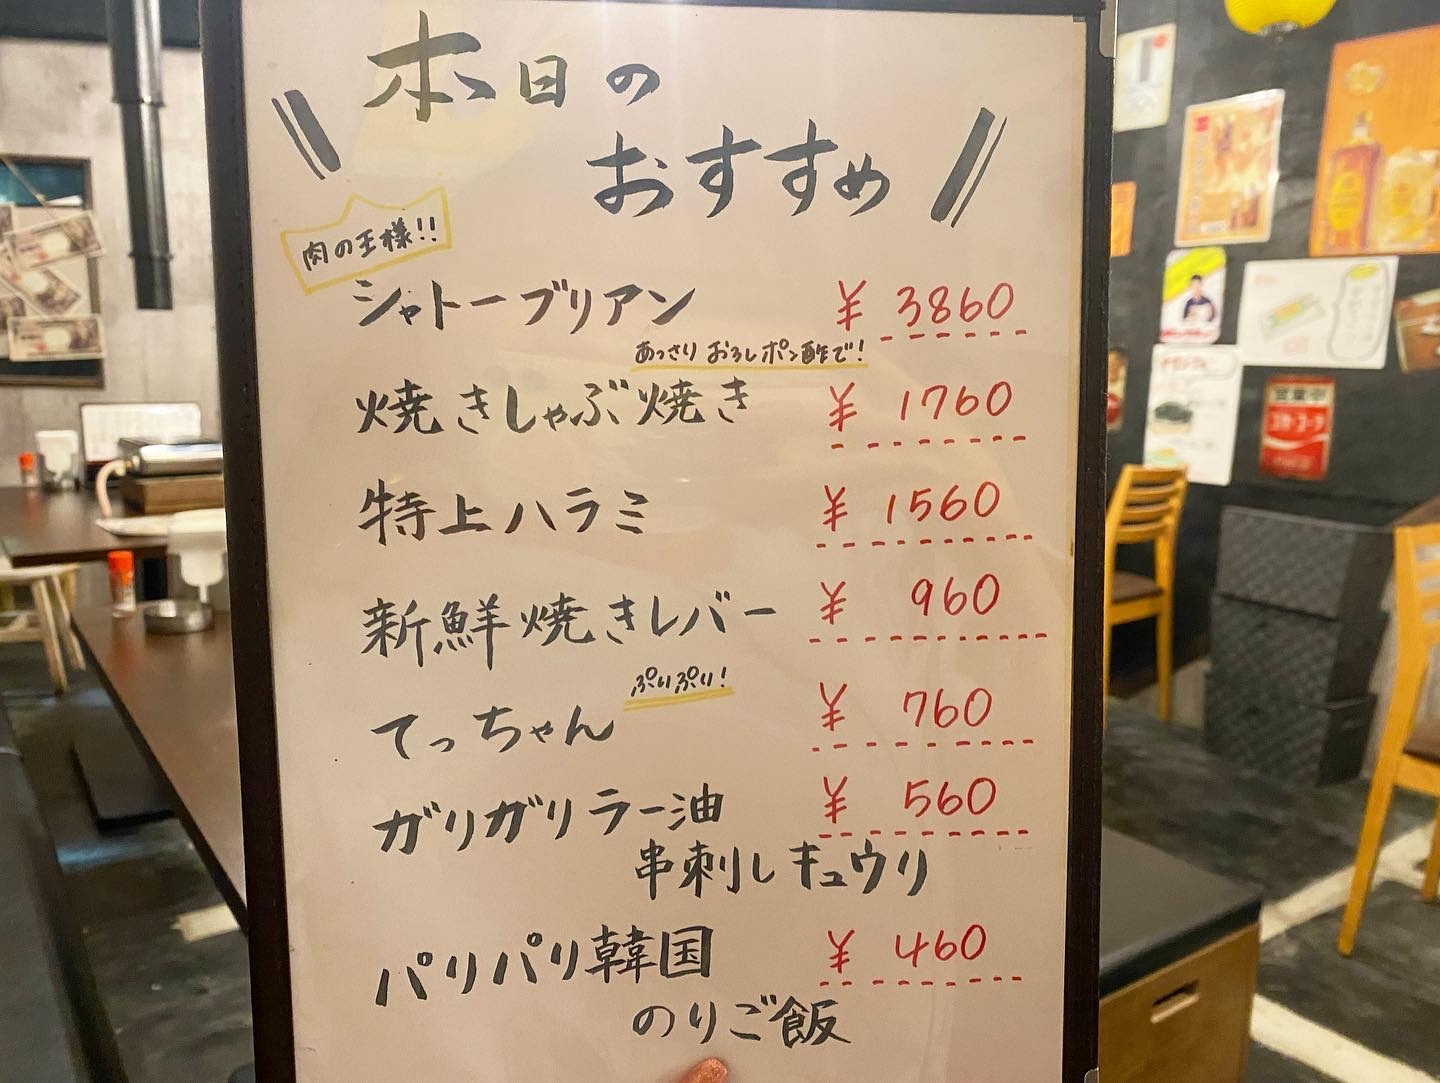 本日の
おすすめ
肉の王様!!
シャトーブリアン ¥3860
あっさりおろしポン酢で!
焼きしゃぶ焼き ¥1760
特上ハラミ ¥1560
新鮮焼きレバー ¥960
ぷりぷり!
てっちゃん ¥760
ガリガリラー油 ¥560
串刺しキュウリ
パリパリ韓国 ¥460
のりご飯
営業中
コカ・コーラ